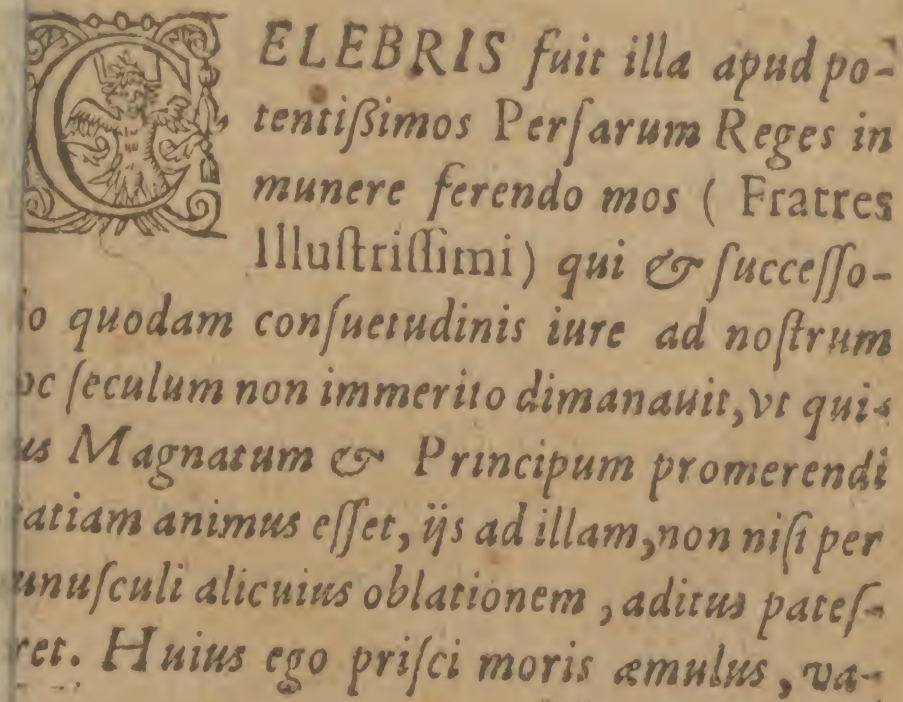 CELEBRIS fuit illa apud po-
tentißimos Perſarum Reges in
munere ferendo mos ( Fratres
Illuſtriſſimi) qui & ſucceſſo-
o quodam conſuetudinis iure ad noſtrum
oc ſeculum non immerito dimanauit, vt qui-
us Magnatum & Principum promerendi
atiam animus eſſet, ijs ad illam, non niſi per
unuſculi alicuius oblationem, aditus pateſ-
ret. Huius ego priſci moris æmulus, va-